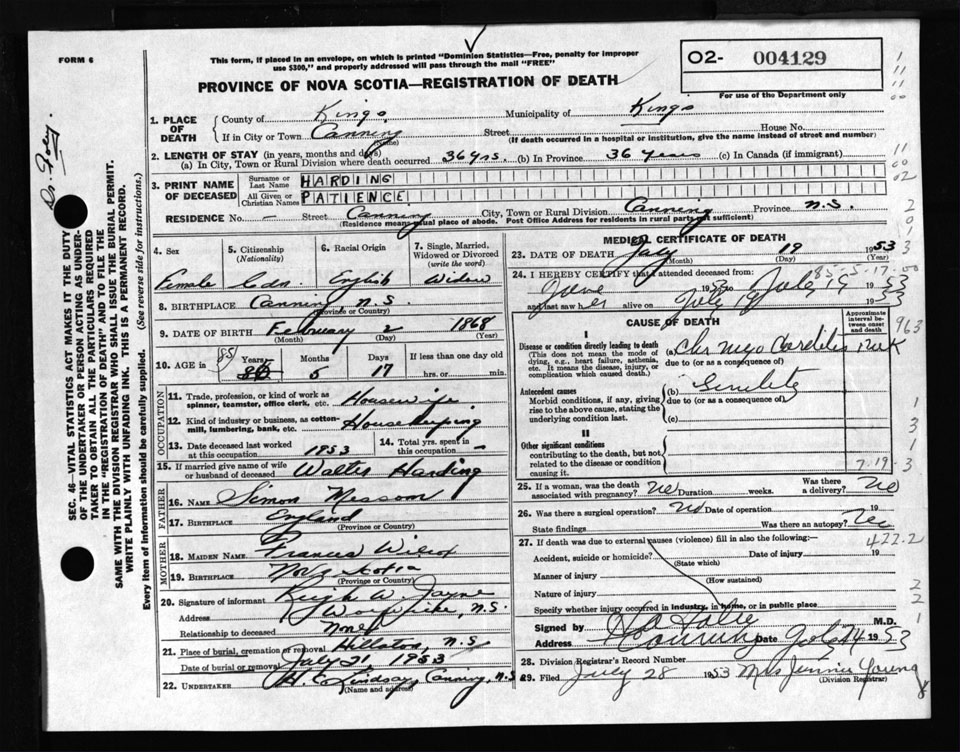 FORM 6
This form, if placed in an envelope, on which is printed "Dominion Statistics—Free, penalty for improper
use $300," and properly addressed will pass through the mail "FREE"
O2- 004129
For use of the Department only
PROVINCE OF NOVA SCOTIA—REGISTRATION OF DEATH
1. PLACE OF DEATH
County of Kings Municipality of Kings
If in City or Town Canning Street House No.
(Name) (If death occurred in a hospital or institution, give the name instead of street and number)
2. LENGTH OF STAY (in years, months and days)
(a) In City, Town or Rural Division where death occurred 36 yrs. (b) In Province 36 years (c) In Canada (if immigrant)
3. PRINT NAME OF DECEASED
Surname or Last Name HARDING
All Given or Christian Names PATIENCE
RESIDENCE No. - Street Canning City, Town or Rural Division Canning Province N.S.
(Residence means usual place of abode. Post Office Address for residents in rural parts not sufficient)
4. Sex 5. Citizenship (Nationality) 6. Racial Origin 7. Single, Married, Widowed or Divorced (write the word)
Female Cdn. English Widow
8. BIRTHPLACE Canning N.S.
(Province or Country)
9. DATE OF BIRTH February 2 1868
(Month) (Day) (Year)
10. AGE in Years Months Days If less than one day old
85 5 17 hrs. or min.
OCCUPATION
11. Trade, profession, or kind of work as spinner, teamster, office clerk, etc. Housewife
12. Kind of industry or business, as cotton-mill, lumbering, bank, etc. Housekeeping
13. Date deceased last worked at this occupation 1953 14. Total yrs. spent in this occupation -
15. If married give name of wife or husband of deceased Walter Harding
FATHER
16. NAME Simon
17. BIRTHPLACE England
(Province or Country)
MOTHER
18. MAIDEN NAME Frances Wilcox
19. BIRTHPLACE Nova Scotia
(Province or Country)
20. Signature of informant W. Jayne
Address Wolfville, N.S.
Relationship to deceased None
21. Place of burial, cremation or removal Hillaton, N.S.
Date of burial or removal July 21, 1953
22. UNDERTAKER H. E. Lindsay, Canning, N.S.
(Name and address)
MEDICAL CERTIFICATE OF DEATH
23. DATE OF DEATH July 19 1953
(Month) (Day)
85-5-17-00
24. I HEREBY CERTIFY that I attended deceased from
June 1953 to July 19 1953
and last saw her alive on July 19 1953
CAUSE OF DEATH
Approximate interval between onset and death
963
I
Disease or condition directly leading to death (a) Chr Myocarditis
(This does not mean the mode of dying, e.g., heart failure, asthenia, etc. It means the disease, injury, or complication which caused death.)
due to (or as a consequence of)
Antecedent causes (b) Senility
Morbid conditions, if any, giving rise to the above cause, stating the underlying condition last.
due to (or as a consequence of)
(c)
II
Other significant conditions contributing to the death, but not related to the disease or condition causing it.
7-19
25. If a woman, was the death associated with pregnancy? No Duration weeks. Was there a delivery? No
26. Was there a surgical operation? No Date of operation 19
State findings Was there an autopsy? No
422.2
27. If death was due to external causes (violence) fill in also the following:—
Accident, suicide or homicide? Date of injury 19
(State which)
Manner of injury
(How sustained)
Nature of injury
Specify whether injury occurred in industry, in home, or in public place
Signed by M.D.
Address Canning Date July 24 1953
28. Division Registrar's Record Number
29. Filed July 28 1953 Mrs Jennie Young
(Division Registrar)
Dr. Foley.
SEC. 46—VITAL STATISTICS ACT MAKES IT THE DUTY
OF THE UNDERTAKER OR PERSON ACTING AS UNDER-
TAKER TO OBTAIN ALL THE PARTICULARS REQUIRED
IN THE "REGISTRATION OF DEATH" AND TO FILE THE
SAME WITH THE DIVISION REGISTRAR WHO SHALL ISSUE THE BURIAL PERMIT.
WRITE PLAINLY WITH UNFADING INK. THIS IS A PERMANENT RECORD.
Every item of Information should be carefully supplied. (See reverse side for instructions.)